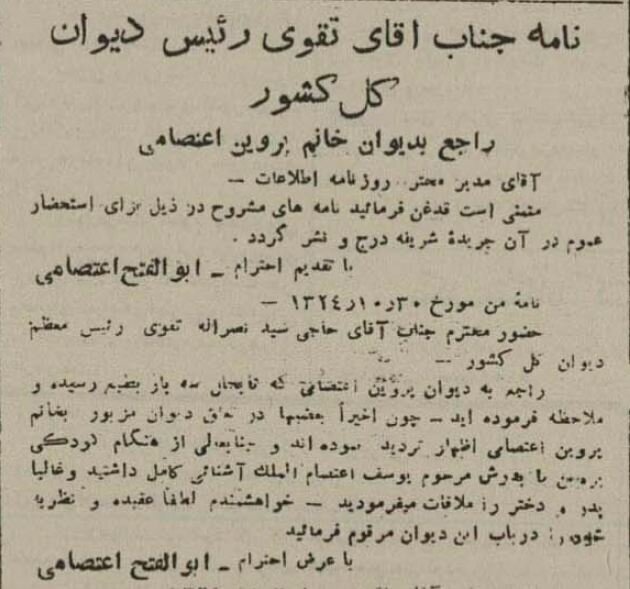 نامه جناب اقای تقوی رئیس دیوان
کل کشور
راجع بدیوان خانم پروین اعتصامی
آقای مدیر محترم روزنامه اطلاعات –
متمنی است قدغن فرمائید نامه های مشروح در ذیل برای استحضار
عموم در آن جریدهٔ شریفه درج و نشر گردد .
با تقدیم احترام – ابوالفتح اعتصامی
نامهٔ من مورخ ۳۰ر۱۰ر۱۳۲٤ –
حضور محترم جناب آقای حاجی سید نصراله تقوی رئیس معظم
دیوان کل کشور –
راجع به دیوان پروین اعتصامی که تابحال سه بار بطبع رسیده و
ملاحظه فرموده اید – چون اخیراً بعضیها در تعلق دیوان مزبور بخانم
پروین اعتصامی اظهار تردید نموده اند و جنابعالی از هنگام کودکی
پروین با پدرش مرحوم یوسف اعتصام الملك آشنائی کامل داشتید وغالبا
پدر و دختر را ملاقات میفرمودید – خواهشمندم لطفا عقیده و نظریه
خود را درباب این دیوان مرقوم فرمائید
با عرض احترام – ابوالفتح اعتصامی